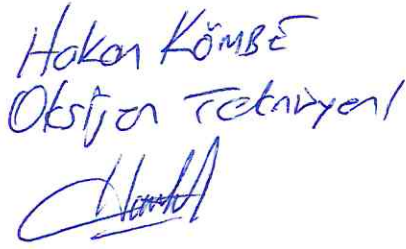 Hakan KÖMBE
Oksijen Teknisyeni